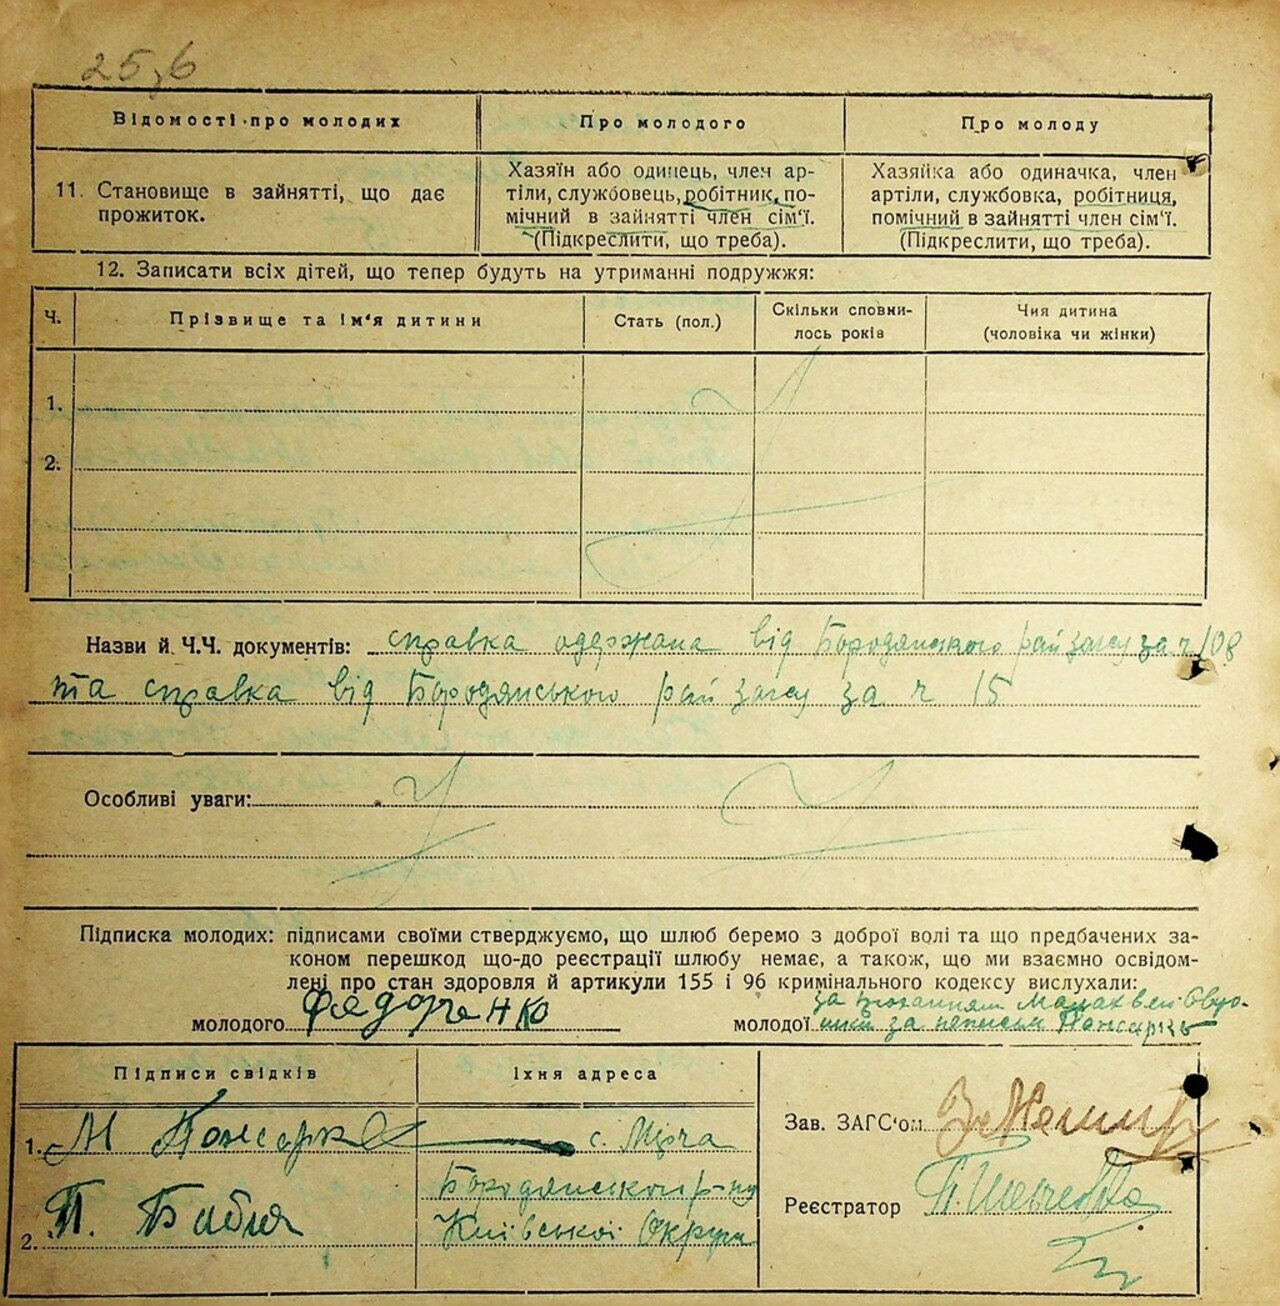 25,6
Відомості про молодих
Про молодого
Про молоду
11. Становище в зайнятті, що дає
прожиток.
Хазяїн або одинець, член ар-
тіли, службовець, робітник, по-
мічний в зайнятті член сім'ї.
(Підкреслити, що треба).
Хазяйка або одиначка, член
артіли, службовка, робітниця,
помічний в зайнятті член сім'ї.
(Підкреслити, що треба).
12. Записати всіх дітей, що тепер будуть на утриманні подружжя:
Ч.
Прізвище та ім'я дитини
Стать (пол.)
Скільки сповни-
лось років
Чия дитина
(чоловіка чи жінки)
1.
2.
Назви й Ч.Ч. документів: справка одержана від Бородянского рай загсу за ч 108
та справка від Бородянського рай загсу за ч 15
Особливі уваги:
Підписка молодих: підписами своїми стверджуємо, що шлюб беремо з доброї волі та що предбачених за-
коном перешкод що-до реєстрації шлюбу немає, а також, що ми взаємно освідом-
лені про стан здоровля й артикули 155 і 96 кримінального кодексу вислухали:
молодого Федорченко
за
молодої за Понсарко
Підписи свідків
Їхня адреса
1. М Понсарко
с. Мірча
Бородянської р-ну
2. П. Бабич
Київської Округи
Зав. ЗАГС'ом
Реєстратор П. Шевченко